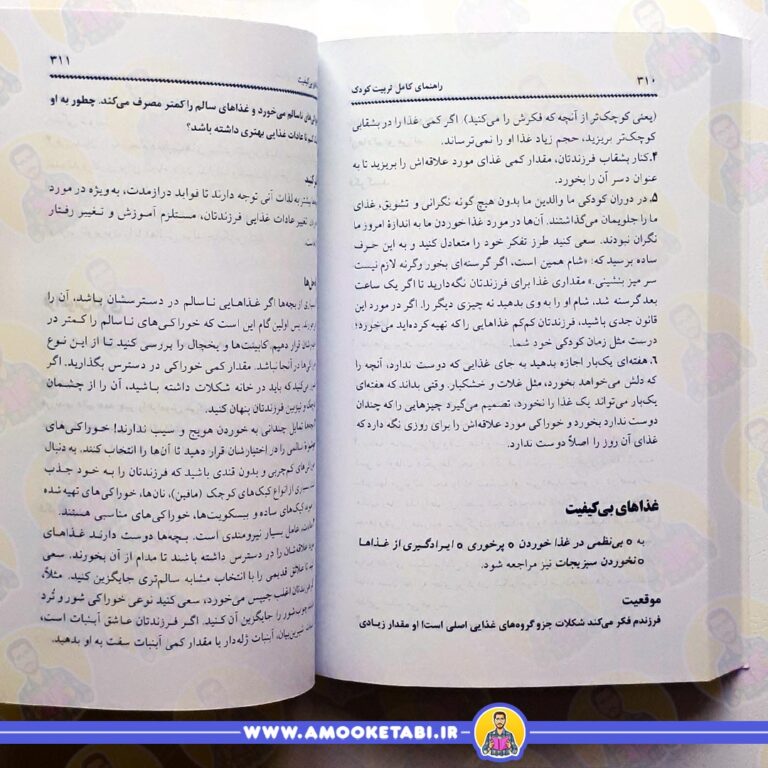 ۳۱۰
راهنمای کامل تربیت کودک
(یعنی کوچک‌تر از آنچه که فکرش را می‌کنید). اگر کمی غذا را در بشقابی
کوچک‌تر بریزید، حجم زیاد غذا او را نمی‌ترساند.
۴.کنار بشقاب فرزندتان، مقدار کمی غذای مورد علاقه‌اش را بریزید تا به
عنوان دسر آن را بخورد.
۵.در دوران کودکی ما والدین ما بدون هیچ گونه نگرانی و تشویق، غذای
ما را جلویمان می‌گذاشتند. آن‌ها در مورد غذا خوردن ما به اندازهٔ امروز ما
نگران نبودند. سعی کنید طرز تفکر خود را متعادل کنید و به این حرف
ساده برسید که: «شام همین است، اگر گرسنه‌ای بخور وگرنه لازم نیست
سر میز بنشینی.» مقداری غذا برای فرزندتان نگه‌دارید تا اگر یک ساعت
بعد گرسنه شد، شام او را به وی بدهید نه چیزی دیگر را. اگر در مورد این
قانون جدی باشید، فرزندتان کم‌کم غذاهایی را که تهیه کرده‌اید می‌خورد؛
درست مثل زمان کودکی خود شما.
۶.هفته‌ای یک‌بار اجازه بدهید به جای غذایی که دوست ندارد، آنچه را
که دلش می‌خواهد بخورد، مثل غلات و خشکبار. وقتی بداند که هفته‌ای
یک‌بار می‌تواند یک غذا را نخورد، تصمیم می‌گیرد چیزهایی را که چندان
دوست ندارد بخورد و خوراکی مورد علاقه‌اش را برای روزی نگه دارد که
غذای آن روز را اصلاً دوست ندارد.
غذاهای بی‌کیفیت
به ० بی‌نظمی در غذا خوردن ० پرخوری ० ایرادگیری از غذاها
० نخوردن سبزیجات نیز مراجعه شود.
موقعیت
فرزندم فکر می‌کند شکلات جزو گروه‌های غذایی اصلی است! او مقدار زیادی
۳۱۱
بی‌کیفیت
ناسالم می‌خورد و غذاهای سالم را کمتر مصرف می‌کند. چطور به او
تا عادات غذایی بهتری داشته باشد؟
کنید
بیشتر به لذات آنی توجه دارند تا فواید درازمدت، به‌ویژه در مورد
تغییر عادات غذایی فرزندتان، مستلزم آموزش و تغییر رفتار
از بچه‌ها اگر غذاهایی ناسالم در دسترسشان باشد، آن را
پس اولین گام این است که خوراکی‌های ناسالم را کمتر در
قرار دهیم. کابینت‌ها و یخچال را بررسی کنید تا از این نوع
در آنجا نباشد. مقدار کمی خوراکی در دسترس بگذارید. اگر
می‌کنید که باید در خانه شکلات داشته باشید، آن را از چشمان
و تیزبین فرزندتان پنهان کنید.
تمایل چندانی به خوردن هویج و سیب ندارند! خوراکی‌های
سالمی را در اختیارشان قرار دهید تا آن‌ها را انتخاب کنند. به دنبال
کم‌چربی و بدون قندی باشید که فرزندتان را به خود جذب
بسیاری از انواع کیک‌های کوچک (مافین)، نان‌ها، خوراکی‌های تهیه شده
کیک‌های ساده و بیسکویت‌ها، خوراکی‌های مناسبی هستند.
عادت، عامل بسیار نیرومندی است. بچه‌ها دوست دارند غذاهای
علاقه‌شان را در دسترس داشته باشند تا مدام از آن بخورند. سعی
تا علائق قدیمی را با انتخاب مشابه سالم‌تری جایگزین کنید. مثلاً،
فرزندتان اغلب چیپس می‌خورد، سعی کنید نوعی خوراکی شور و تُرد
چوب‌شور را جایگزین آن کنید. اگر فرزندتان عاشق آبنبات است،
شیرین‌بیان، آبنبات ژله‌دار یا مقدار کمی آبنبات سفت به او بدهید.
WWW.AMOOKETABI.IR